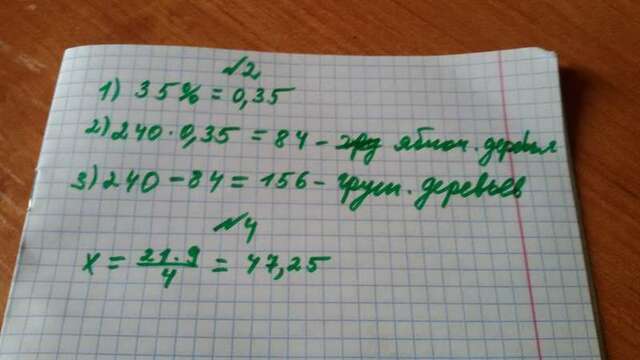 №2
1) 35% = 0,35
2) 240 · 0,35 = 84 – яблон. деревья
3) 240 – 84 = 156 – груш. деревьев
№4
x = 21·9/4 = 47,25